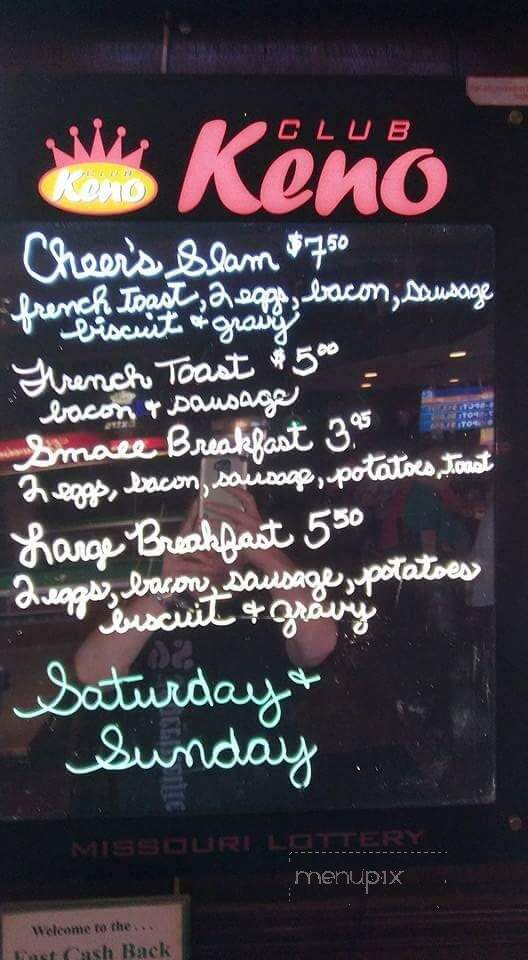 CLUB
Keno
CLUB
Keno
Cheer's Slam $7.50
french toast, 2 eggs, bacon, sausage
biscuit & gravy
French Toast $5.00
bacon & sausage
Small Breakfast 3.95
2 eggs, bacon, sausage, potatoes, toast
Large Breakfast 5.50
2 eggs, bacon, sausage, potatoes
biscuit & gravy
Saturday &
Sunday
MISSOURI LOTTERY
menupix
Welcome to the ...
Fast Cash Back